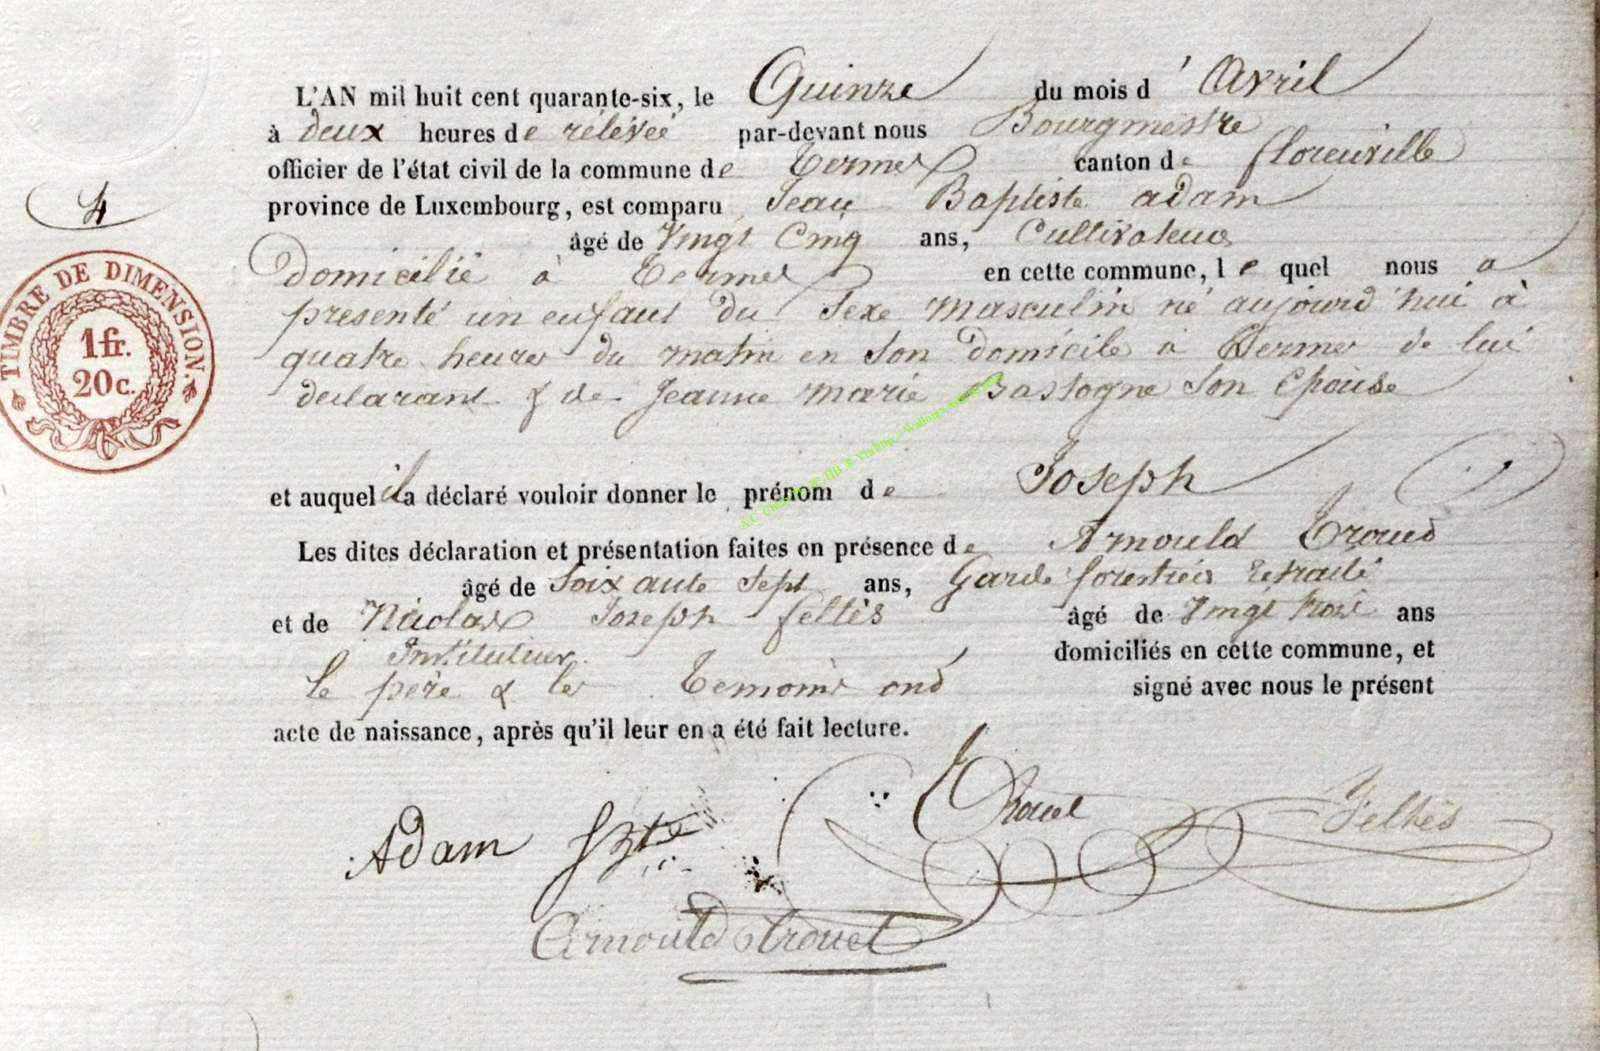 L'AN mil huit cent quarante-six, le Quinze du mois d'Avril
à deux heures de rélévée par-devant nous Bourgmestre
officier de l'état civil de la commune de Termes canton de florenville
province de Luxembourg, est comparu Jean Baptiste adam
4
âgé de Vingt Cinq ans, Cultivateur
domicilié à Termes en cette commune, lequel nous a
présenté un enfant du Sexe masculin né aujourd'hui à
quatre heures du matin en Son domicile à Termes de lui
déclarant & de Jeanne marie Bastogne Son Epouse
TIMBRE DE DIMENSION.
1 fr.
20 c.
et auquel il a déclaré vouloir donner le prénom de Joseph
Les dites déclaration et présentation faites en présence de Arnould
âgé de Soixante Sept ans, Garde forestier retraité
et de Nicolas Joseph feltès âgé de Vingt trois ans
Instituteur domiciliés en cette commune, et
le père & les Temoins ond signé avec nous le présent
acte de naissance, après qu'il leur en a été fait lecture.
Trouet
Feltès
Adam
Arnould trouet